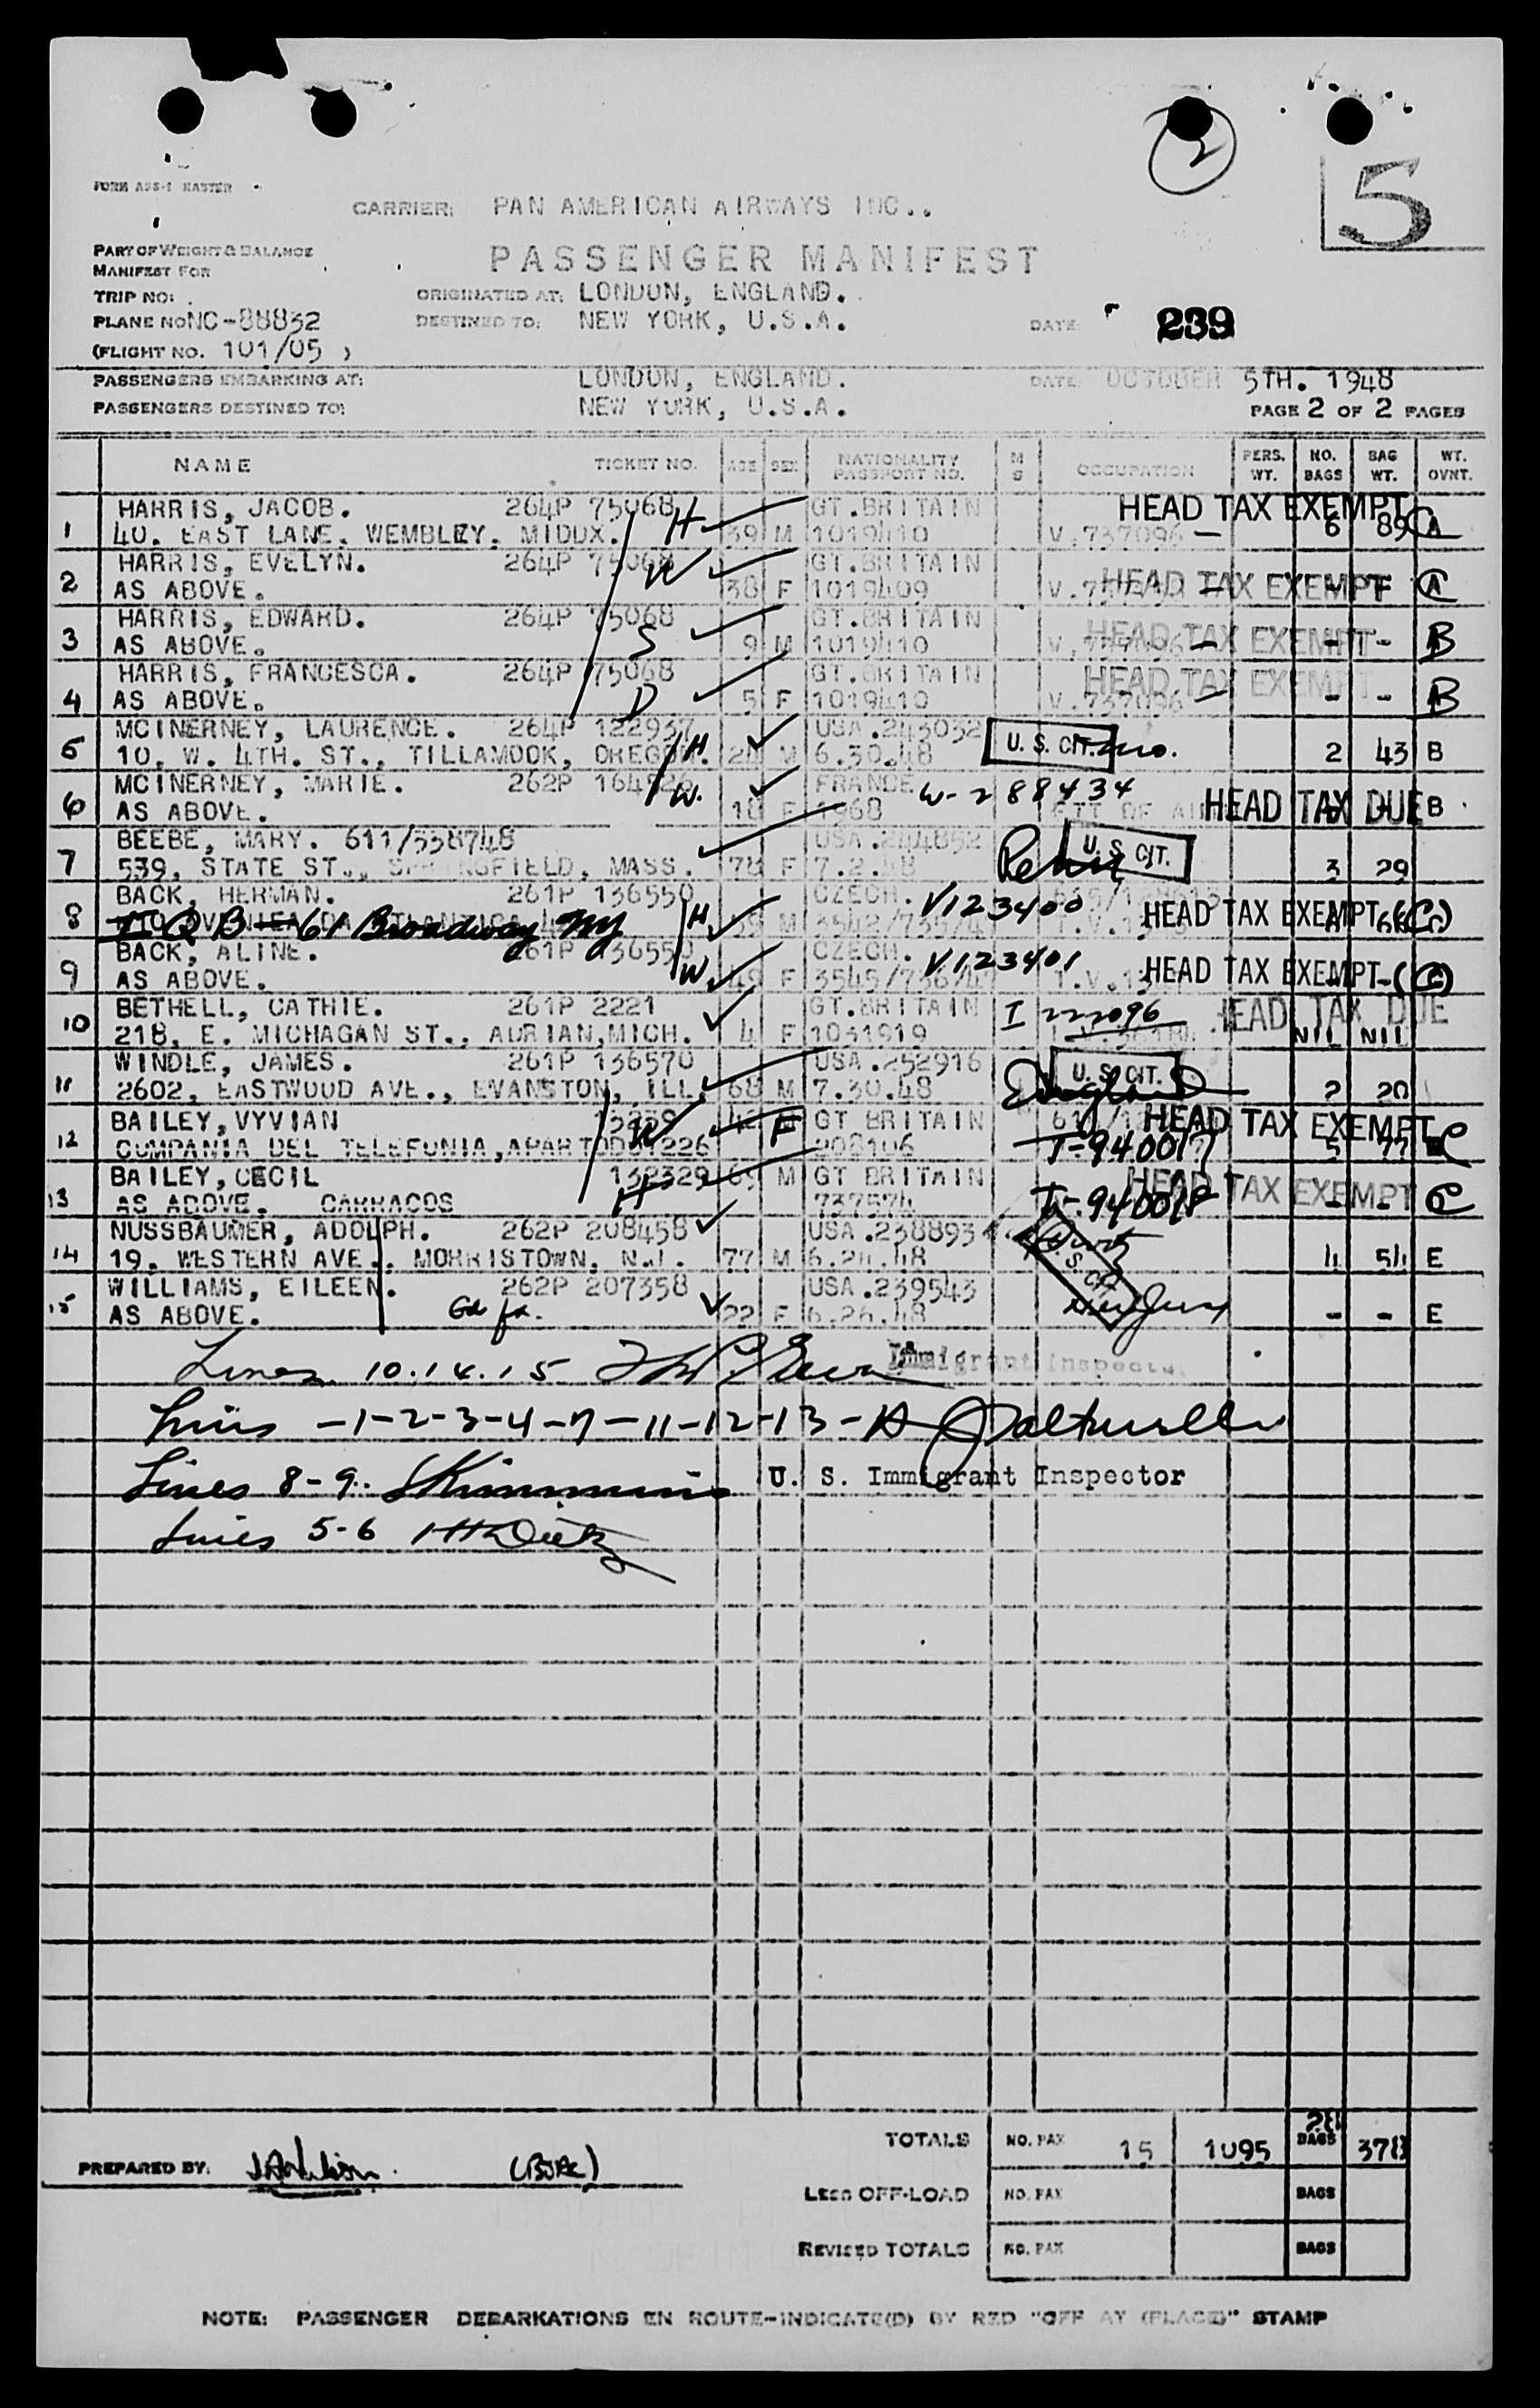 2
5
FORM ASS-1 MASTER
CARRIER: PAN AMERICAN AIRWAYS INC..
PART OF WEIGHT & BALANCE
MANIFEST FOR
PASSENGER MANIFEST
TRIP NO:
ORIGINATED AT: LONDON, ENGLAND.
PLANE NO NC-88832
DESTINED TO: NEW YORK, U.S.A.
DATE: 239
(FLIGHT NO. 101/05 )
PASSENGERS EMBARKING AT: LONDON, ENGLAND. DATE: OCTOBER 5TH. 1948
PASSENGERS DESTINED TO: NEW YORK, U.S.A. PAGE 2 OF 2 PAGES
NAME TICKET NO. AGE SEX NATIONALITY PASSPORT NO. M S OCCUPATION PERS. WT. NO. BAGS BAG WT. WT. OVNT.
HARRIS, JACOB. 264P 75068 H GT.BRITAIN HEAD TAX EXEMPT
1 40. EAST LANE. WEMBLEY. MIDDX. 39 M 1019410 V.737096 - 6 89 A
HARRIS, EVELYN. 264P 75068 W GT.BRITAIN
2 AS ABOVE. 38 F 1019409 HEAD TAX EXEMPT A
HARRIS, EDWARD. 264P 75068 GT.BRITAIN
3 AS ABOVE. S 9 M 1019410 HEAD TAX EXEMPT - B
HARRIS, FRANCESCA. 264P 75068 GT.BRITAIN HEAD TAX EXEMPT
4 AS ABOVE. D 5 F 1019410 V.737096 - - - B
MCINERNEY, LAURENCE. 264P 122937 USA.243032
5 10. W. 4TH. ST., TILLAMOOK, OREGON. H M 6.30.48 U. S. CIT. 2 43 B
MCINERNEY, MARIE. 262P W. FRANCE W-288434
6 AS ABOVE. 18 F 1968 HEAD TAX DUE B
BEEBE, MARY. 611/338748 USA.244852
7 539, STATE ST., SPRINGFIELD, MASS. 78 F 7.2.48 U. S. CIT. 3 29
BACK, HERMAN. 261P 136550 CZECH. V123400
8 61 Broadway NY H M HEAD TAX EXEMPT (C)
BACK, ALINE. 261P 136550 CZECH. V123401
9 AS ABOVE. W. 49 F HEAD TAX EXEMPT - (C)
BETHELL, CATHIE. 261P 2221 GT.BRITAIN HEAD TAX DUE
10 218, E. MICHAGAN ST., ADRIAN, MICH. 4 F 1031919 NIL NIL
WINDLE, JAMES. 261P 136570 USA.252916
11 2602, EASTWOOD AVE., EVANSTON, ILL. 68 M 7.30.48 England U. S. CIT. 2 20
BAILEY, VYVIAN W 42 F GT BRITAIN HEAD TAX EXEMPT
12 COMPANIA DEL TELEFONIA, 208106 T-940017 5 77 C
BAILEY, CECIL 132329 69 M GT BRITAIN HEAD TAX EXEMPT
13 AS ABOVE. CARRACOS H 737574 T-940018 - - C
NUSSBAUMER, ADOLPH. 262P 208458 USA.238893
14 19, WESTERN AVE., MORRISTOWN, N.J. 77 M 6.24.48 S. CIT. 4 54 E
WILLIAMS, EILEEN. 262P 207358 USA.239543
15 AS ABOVE. 22 F 6.26.48 New Jersey - - E
Lines 10.14.15 Immigrant Inspector
Lines -1-2-3-4-7-11-12-13-
Lines 8-9. U. S. Immigrant Inspector
Lines 5-6
TOTALS NO. PAX 15 1095 28 BAGS 378
PREPARED BY:
LESS OFF-LOAD NO. PAX BAGS
REVISED TOTALS NO. PAX BAGS
NOTE: PASSENGER DEBARKATIONS EN ROUTE-INDICATE(D) BY RED "OFF AT (PLACE)" STAMP